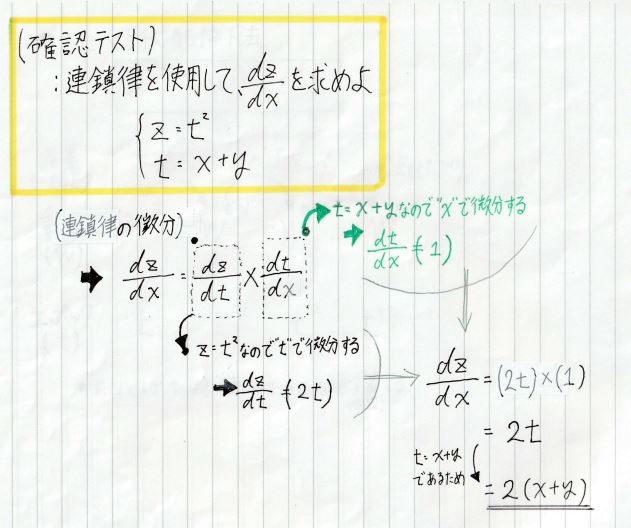 (確認テスト)
:連鎖律を使用して、dz/dxを求めよ
z = t²
t = x+y
(連鎖律の微分)
dz/dx = dz/dt × dt/dx
t = x+yなので"x"で微分する
dt/dx = (1)
z = t²なので"t"で微分する
dz/dt = (2t)
dz/dx = (2t)×(1)
= 2t
t = x+y
であるため
= 2(x+y)